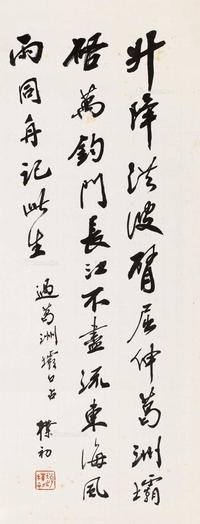 升降洪波臂屈伸葛洲壩
啟萬鈞門長江不盡流東海風
雨同舟記此生
過葛洲壩口占 樸初